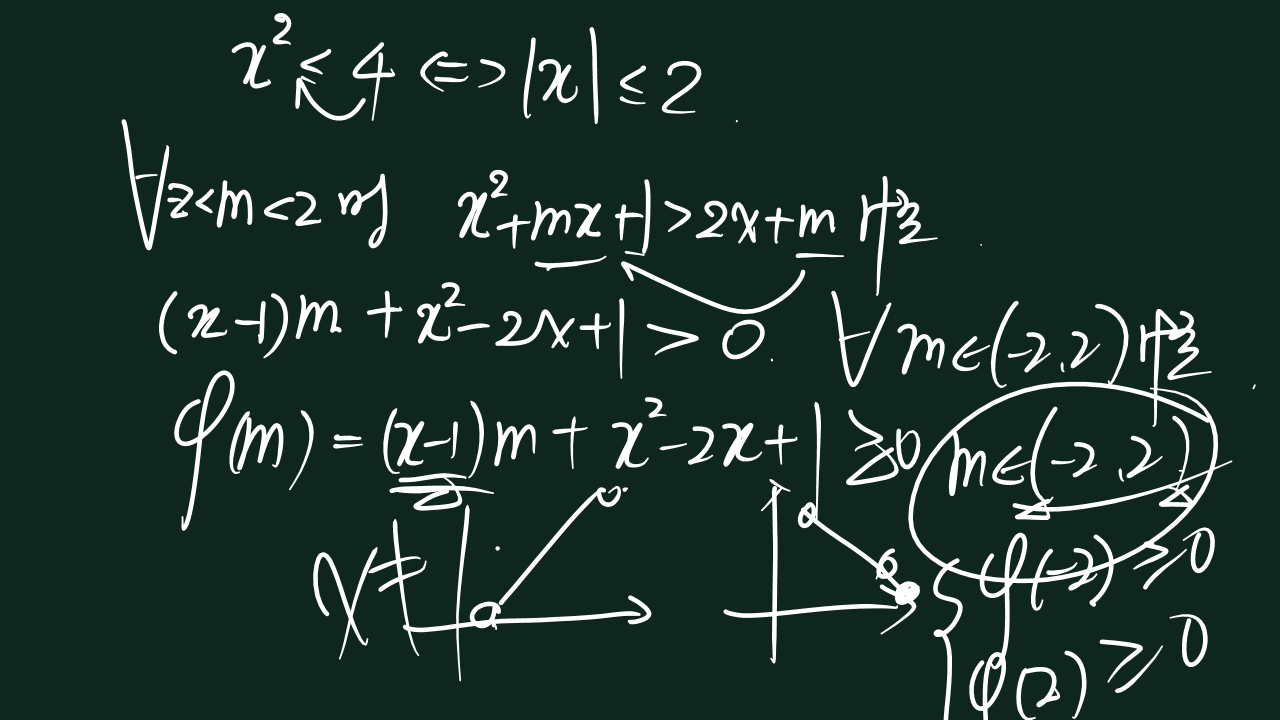 x² ≤ 4 ⇔ |x| ≤ 2
∀ <m<2 x²+mx+1>2x+m
(x-1)m + x²-2x+1 > 0 ∀ m∈(-2,2)
φ(m) = (x-1)m + x²-2x+1 ≥0 m∈(-2,2)
x≠
φ(-2) ≥ 0
φ(2) ≥ 0